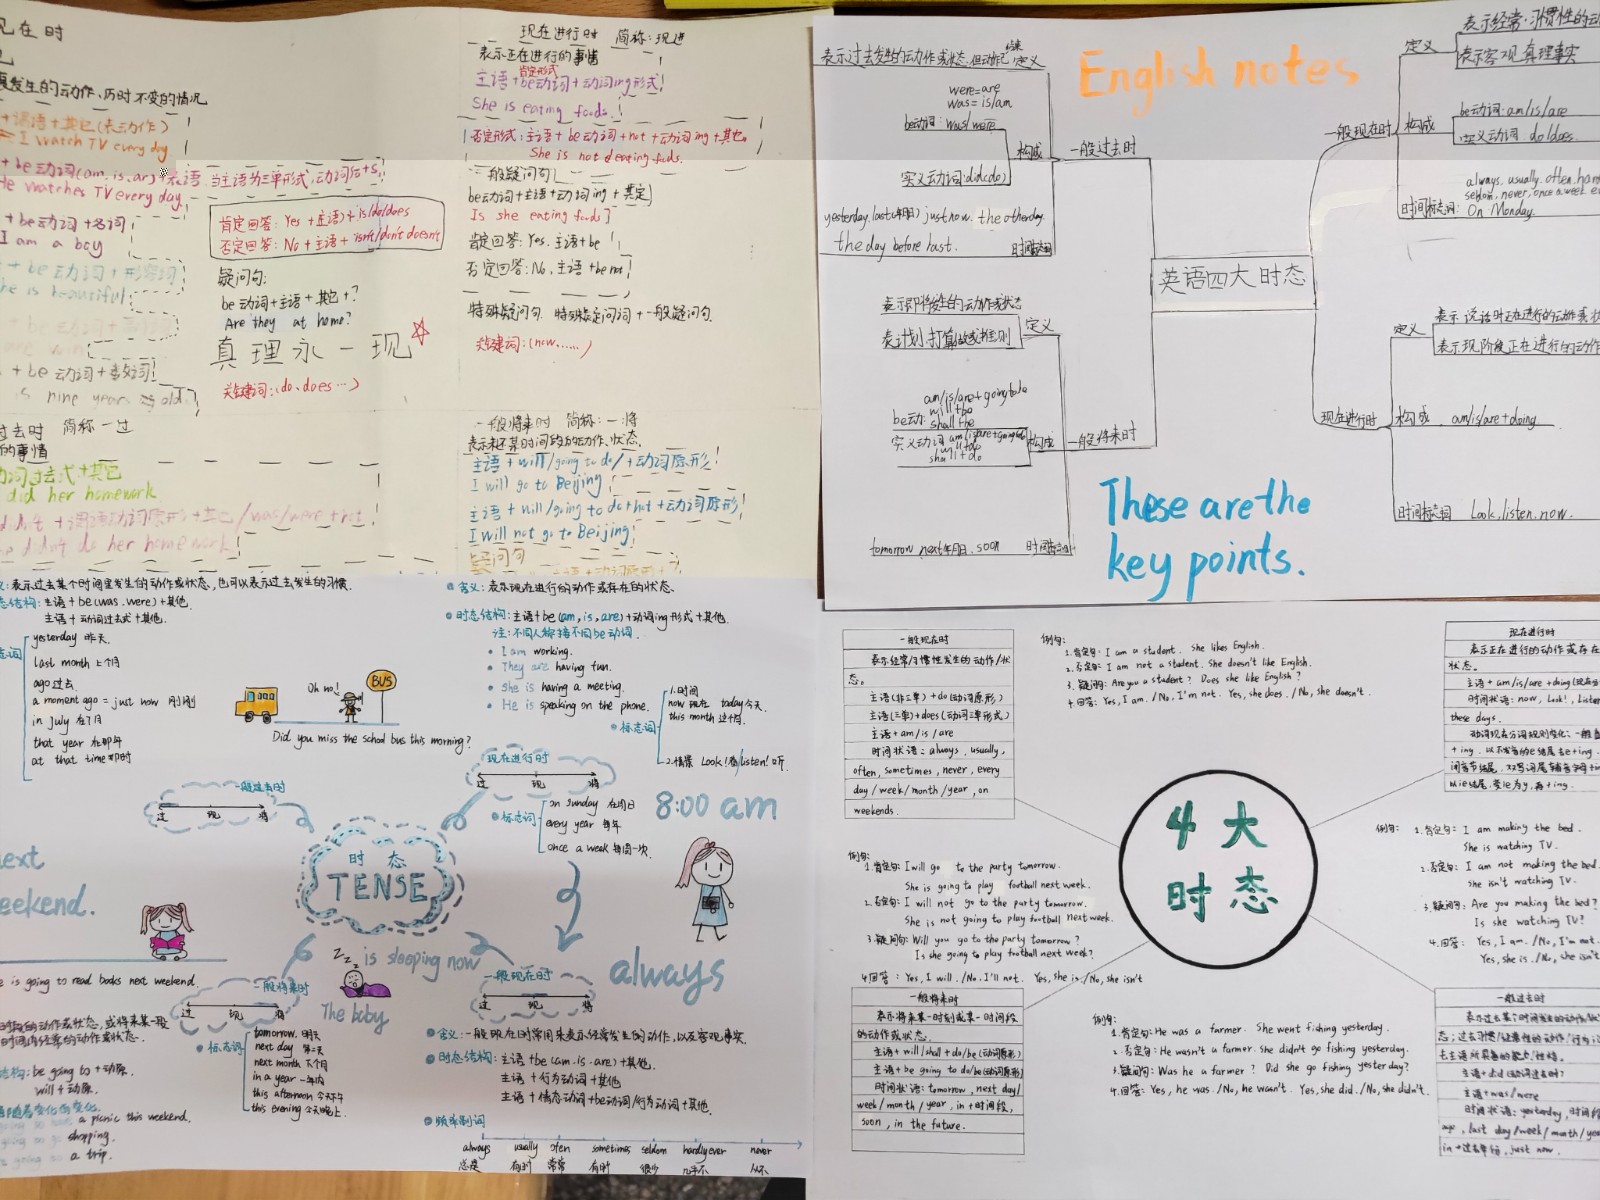 现在时
发生的动作、历时不变的情况
+谓语+其它(表动作)
I watch TV every day
+ be动词(am,is,ar)+表语. 当主语为三单形式,动词后+s.
He watches TV every day
+ be动词 +名词
I am a boy
+ be动词 + 形容词
he is beautiful
+ be动词+数词
is nine years old.
肯定回答: Yes +主语+ is/do/does
否定回答: No +主语+ isn't/don't doesn't
疑问句:
be动词+主语+其它+?
Are they at home?
真理永一现
关键词:(do、does…)
过去时 简称一过
的事情
动词过去式+其它
did her homework
didn't +谓语动词原形+其它/was/were+not
he didn't do her homework
现在进行时 简称:现进
表示正在进行的事情
肯定形式
主语+be动词+动词ing形式
She is eating foods.
否定形式:主语+be动词+not+动词ing+其它.
She is not eating foods.
一般疑问句
be动词+主语+动词ing+其它
Is she eating foods
肯定回答: Yes. 主语+be
否定回答: No, 主语+be not
特殊疑问句. 特殊疑问词+一般疑问句.
关键词:(now……)
一般将来时 简称:一将
表示未来某时间段的动作、状态.
主语+will/going to do/+动词原形
I will go to Beijing
主语+will/going to do+not+动词原形
I will not go to Beijing
疑问句
English notes
英语四大时态
一般过去时
定义
表示过去发生的动作或状态.但动作已结束
构成
were=are
was=is/am
be动词:was/were
实义动词:did(do)
yesterday.last(年月) just now. the otherday.
the day before last.
时间标志词
一般现在时
定义
表示经常·习惯性的动
表示客观真理事实
构成
be动词:am/is/are
实义动词 do/does.
时间标志词:
always, usually, often, har
seldom, never, once a week. e
On Monday.
一般将来时
定义
表示即将发生的动作或状态
表计划.打算做或准则
构成
am/is/are+going to be
be动: will be
shall be
实义动词 am/is/are+going to do
will+do
shall+do
tomorrow next年月日. soon
时间标志词
现在进行时
定义
表示说话时正在进行的动作或状
表示现阶段正在进行的动作
构成. am/is/are+doing
时间标志词 Look,listen,now.
These are the
key points.
:表示过去某个时间里发生的动作或状态,也可以表示过去发生的习惯.
态结构:主语+be(was.were)+其他.
主语+动词过去式+其他.
志词
yesterday 昨天.
last month 上个月
ago 过去.
a moment ago = just now 刚刚
in july 在7月
that year 在那年
at that time 那时
Oh no!
BUS
Did you miss the school bus this morning?
一般过去时
过 现 将
含义:表示现在进行的动作或存在的状态.
时态结构:主语+be(am,is,are)+动词ing形式+其他.
注:不同人称接不同be动词.
I am working.
They are having fun.
She is having a meeting.
He is speaking on the phone.
标志词
1.时间
now 现在 today 今天.
this month 这个月.
2.情景 Look!看 listen! 听.
现在进行时
过 现 将
标志词
on sunday 在周日
every year 每年
once a week 每周一次.
8:00 am
时态
TENSE
next
weekend.
e is going to read books next weekend.
is sleeping now
The baby
always
一般将来时
过 现 将
标志词
tomorrow. 明天
next day 第二天
next month 下个月
in a year 一年内
this afternoon 今天下午
this evening 今天晚上.
的动作或状态,或将来某一段
时间内经常的动作或状态.
结构: be going to +动原.
will + 动原.
a picnic this weekend.
shopping.
a trip.
一般现在时
过 现 将
含义:一般现在时常用来表示经常发生的动作,以及客观事实.
时态结构:主语+be(am.is.are)+其他.
主语+行为动词+其他
主语+情态动词+be动词/行为动词+其他.
频率副词
always usually often sometimes seldom hardly ever never
总是 有时 常常 有时 很少 几乎不 从不
4大
时态
一般现在时
表示经常/习惯性发生的动作/状
态。
主语(非三单)+do(动词原形)
主语(三单)+does(动词三单形式)
主语+am/is/are
时间状语:always, usually,
often, sometimes, never, every
day/week/month/year, on
weekends.
例句:
1.肯定句: I am a student. She likes English.
2.否定句: I am not a student. She doesn't like English.
3.疑问句: Are you a student? Does she like English?
4.回答: Yes, I am. /No, I'm not. Yes, she does. /No, she doesn't.
现在进行时
表示正在进行的动作或存在
状态。
主语+am/is/are+doing(现在分
时间状语: now, Look!, Listen
these days.
动词现在分词规则变化:一般直
+ing. 以不发音的e结尾去e+ing.
闭音节结尾,双写词尾辅音字母+in
以ie结尾,变ie为y,再+ing.
例句:
1.肯定句: I am making the bed.
She is watching TV.
2.否定句: I am not making the bed.
She isn't watching TV.
3.疑问句: Are you making the bed?
Is she watching TV?
4.回答: Yes, I am. /No, I'm not.
Yes, she is. /No, she isn't
例句:
1.肯定句: I will go to the party tomorrow.
She is going to play football next week.
2.否定句: I will not go to the party tomorrow.
She is not going to play football next week.
3.疑问句: Will you go to the party tomorrow?
Is she going to play football next week?
4.回答: Yes, I will. /No, I'll not. Yes, she is. /No, she isn't
一般将来时
表示将来某一时刻或某一时间段
的动作或状态.
主语+will/shall+do/be(动词原形)
主语+be going to do/be(动词原形)
时间状语:tomorrow, next day/
week/month/year, in+时间段,
soon, in the future.
1.肯定句: He was a farmer. She went fishing yesterday.
2.否定句: He wasn't a farmer. She didn't go fishing yesterday.
3.疑问句: Was he a farmer? Did she go fishing yesterday?
4.回答: Yes, he was. /No, he wasn't. Yes, she did. /No, she didn't.
一般过去时
表示过去某个时间发生的动作/状
态;过去习惯/经常性的动作/行为;过
去主语所具备的能力/性格.
主语+did(动词过去时)
主语+was/were
时间状语: yesterday, 时间段
ago, last day/week/month/yea
in+过去年份, just now.